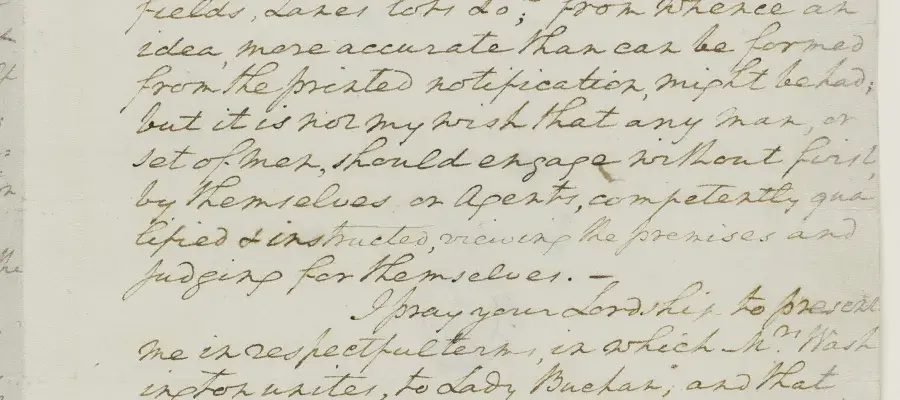 fields, Lanes lots &c; from whence an
idea, more accurate than can be formed
from the printed notification, might be had;
but it is not my wish that any man, or
set of men, should engage without first,
by themselves or Agents, competently qua
lified & instructed, viewing the premises and
judging for themselves. —
I pray your Lordship to present
me in respectful terms, in which Mrs. Wash
ington unites, to Lady Buchan; and that